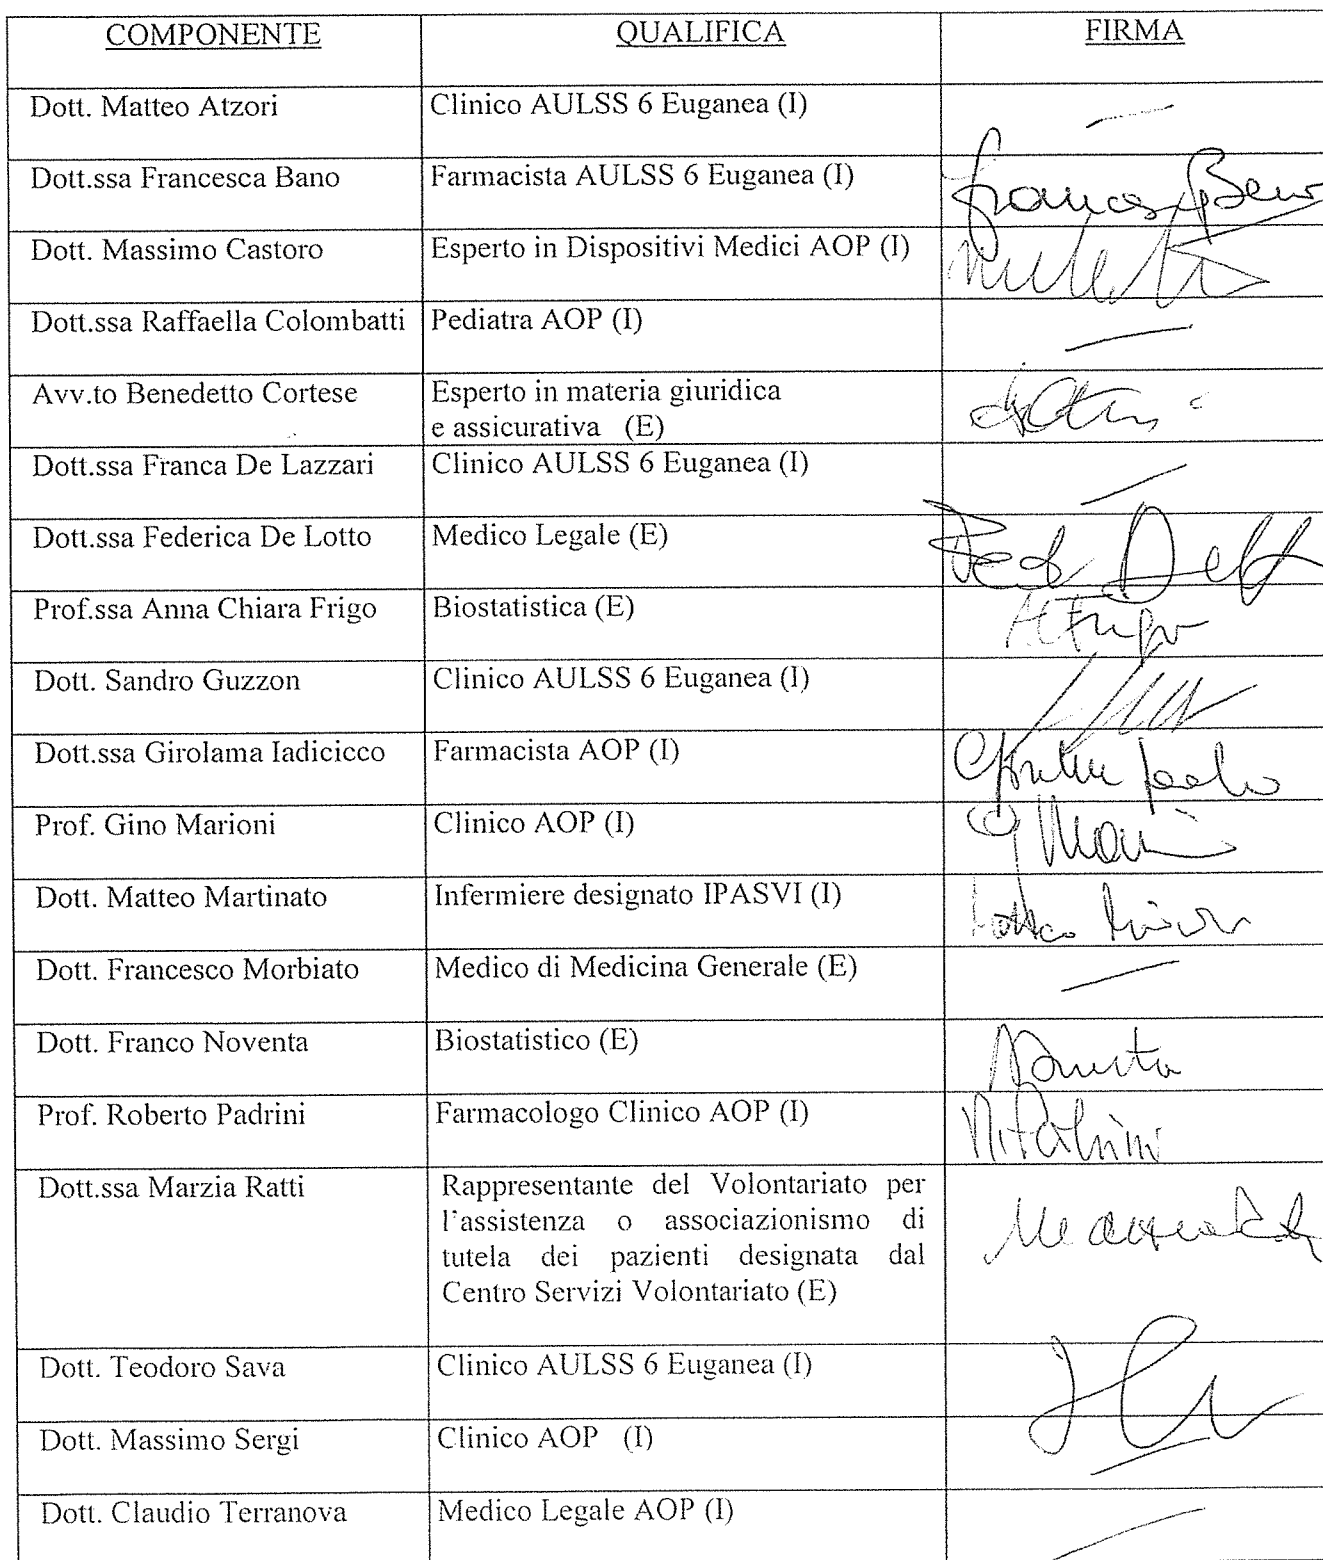 COMPONENTE QUALIFICA FIRMA
Dott. Matteo Atzori Clinico AULSS 6 Euganea (I) —
Dott.ssa Francesca Bano Farmacista AULSS 6 Euganea (I)
Dott. Massimo Castoro Esperto in Dispositivi Medici AOP (I)
Dott.ssa Raffaella Colombatti Pediatra AOP (I) —
Avv.to Benedetto Cortese Esperto in materia giuridica
e assicurativa (E)
Dott.ssa Franca De Lazzari Clinico AULSS 6 Euganea (I) —
Dott.ssa Federica De Lotto Medico Legale (E)
Prof.ssa Anna Chiara Frigo Biostatistica (E) ACFrigo
Dott. Sandro Guzzon Clinico AULSS 6 Euganea (I)
Dott.ssa Girolama Iadicicco Farmacista AOP (I)
Prof. Gino Marioni Clinico AOP (I)
Dott. Matteo Martinato Infermiere designato IPASVI (I)
Dott. Francesco Morbiato Medico di Medicina Generale (E) —
Dott. Franco Noventa Biostatistico (E)
Prof. Roberto Padrini Farmacologo Clinico AOP (I)
Dott.ssa Marzia Ratti Rappresentante del Volontariato per
l'assistenza o associazionismo di
tutela dei pazienti designata dal
Centro Servizi Volontariato (E)
Dott. Teodoro Sava Clinico AULSS 6 Euganea (I)
Dott. Massimo Sergi Clinico AOP (I) —
Dott. Claudio Terranova Medico Legale AOP (I) —